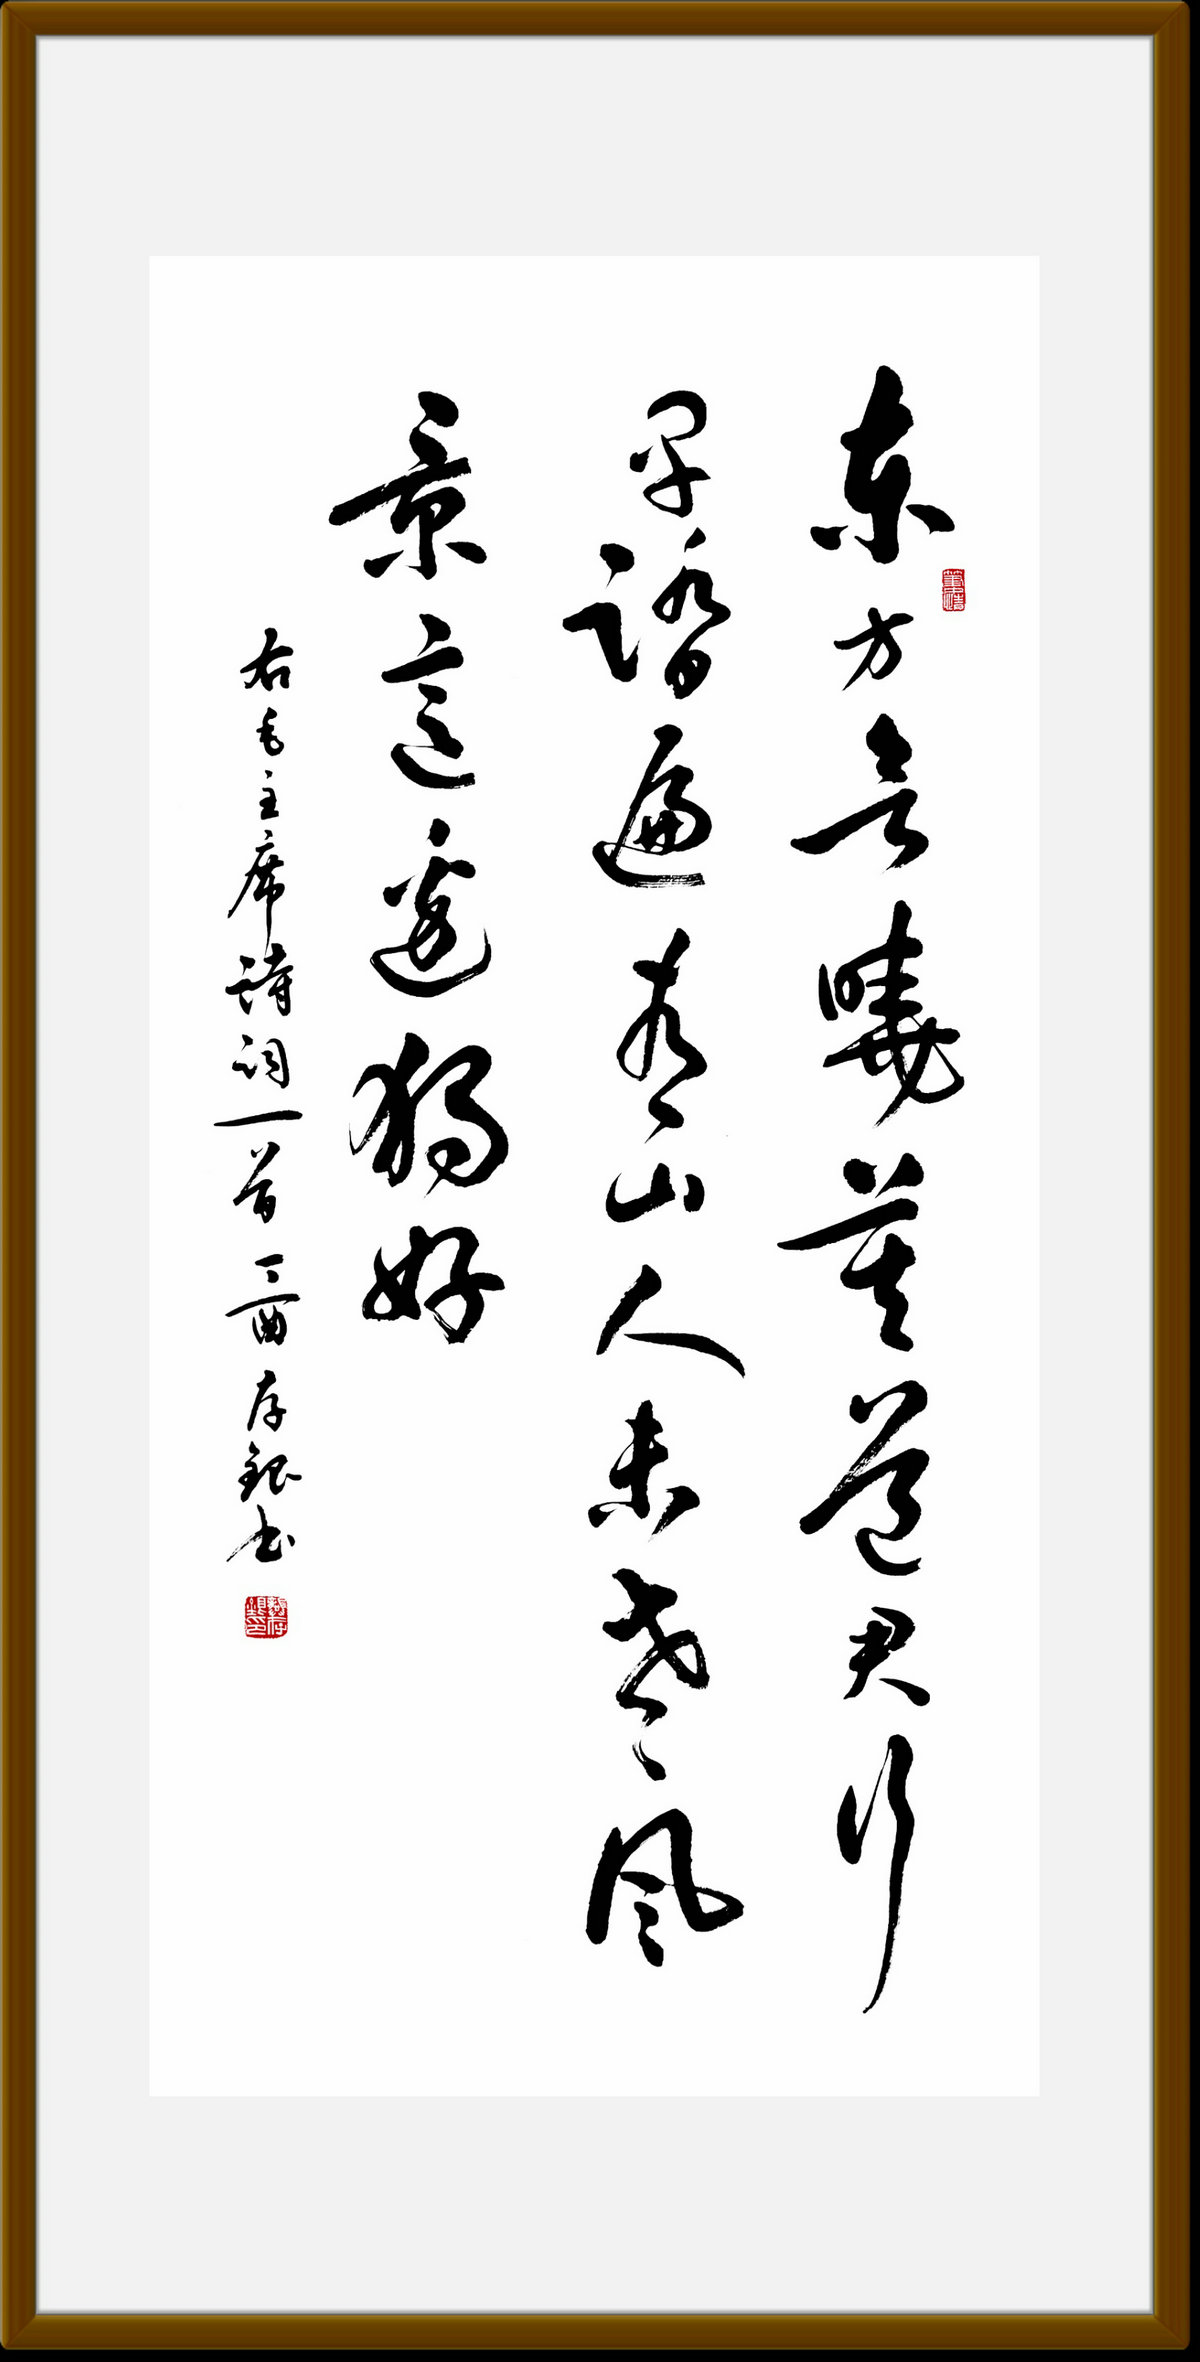 东方欲曉莫道君行
早踏遍青山人未老风
景這邊獨好
右毛主席詩詞一首丁酉存銀书